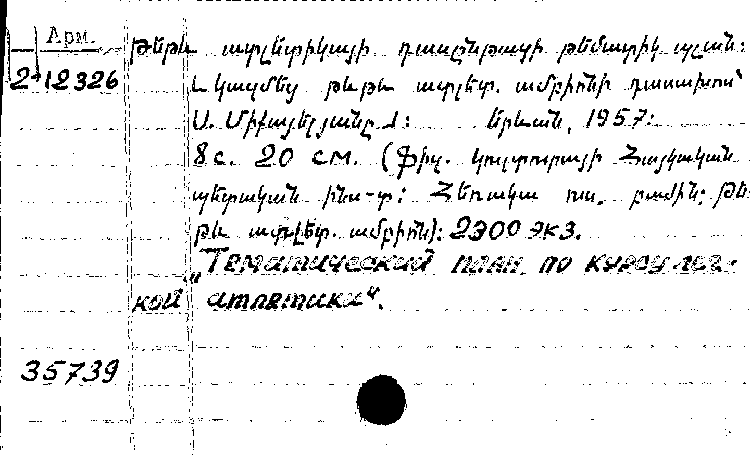 Арм.
Թեթև ատլետիկայի դասընթացի թեմատիկ պլան:
2-12326
կազմեց թեթև ատլետ. ամբիոնի դասախոս
Ս. Միքայելյանը: Երևան, 1957:
8 с. 20 см. (Ֆիզ. կուլտուրայի Հայկական
պետական ինս-տ: Հեռակա ուս. բաժին: Թե-
թև ատլետ. ամբիոն): 2300 экз.
„Тематический план по курсу лег-
кой атлетики“.
35739